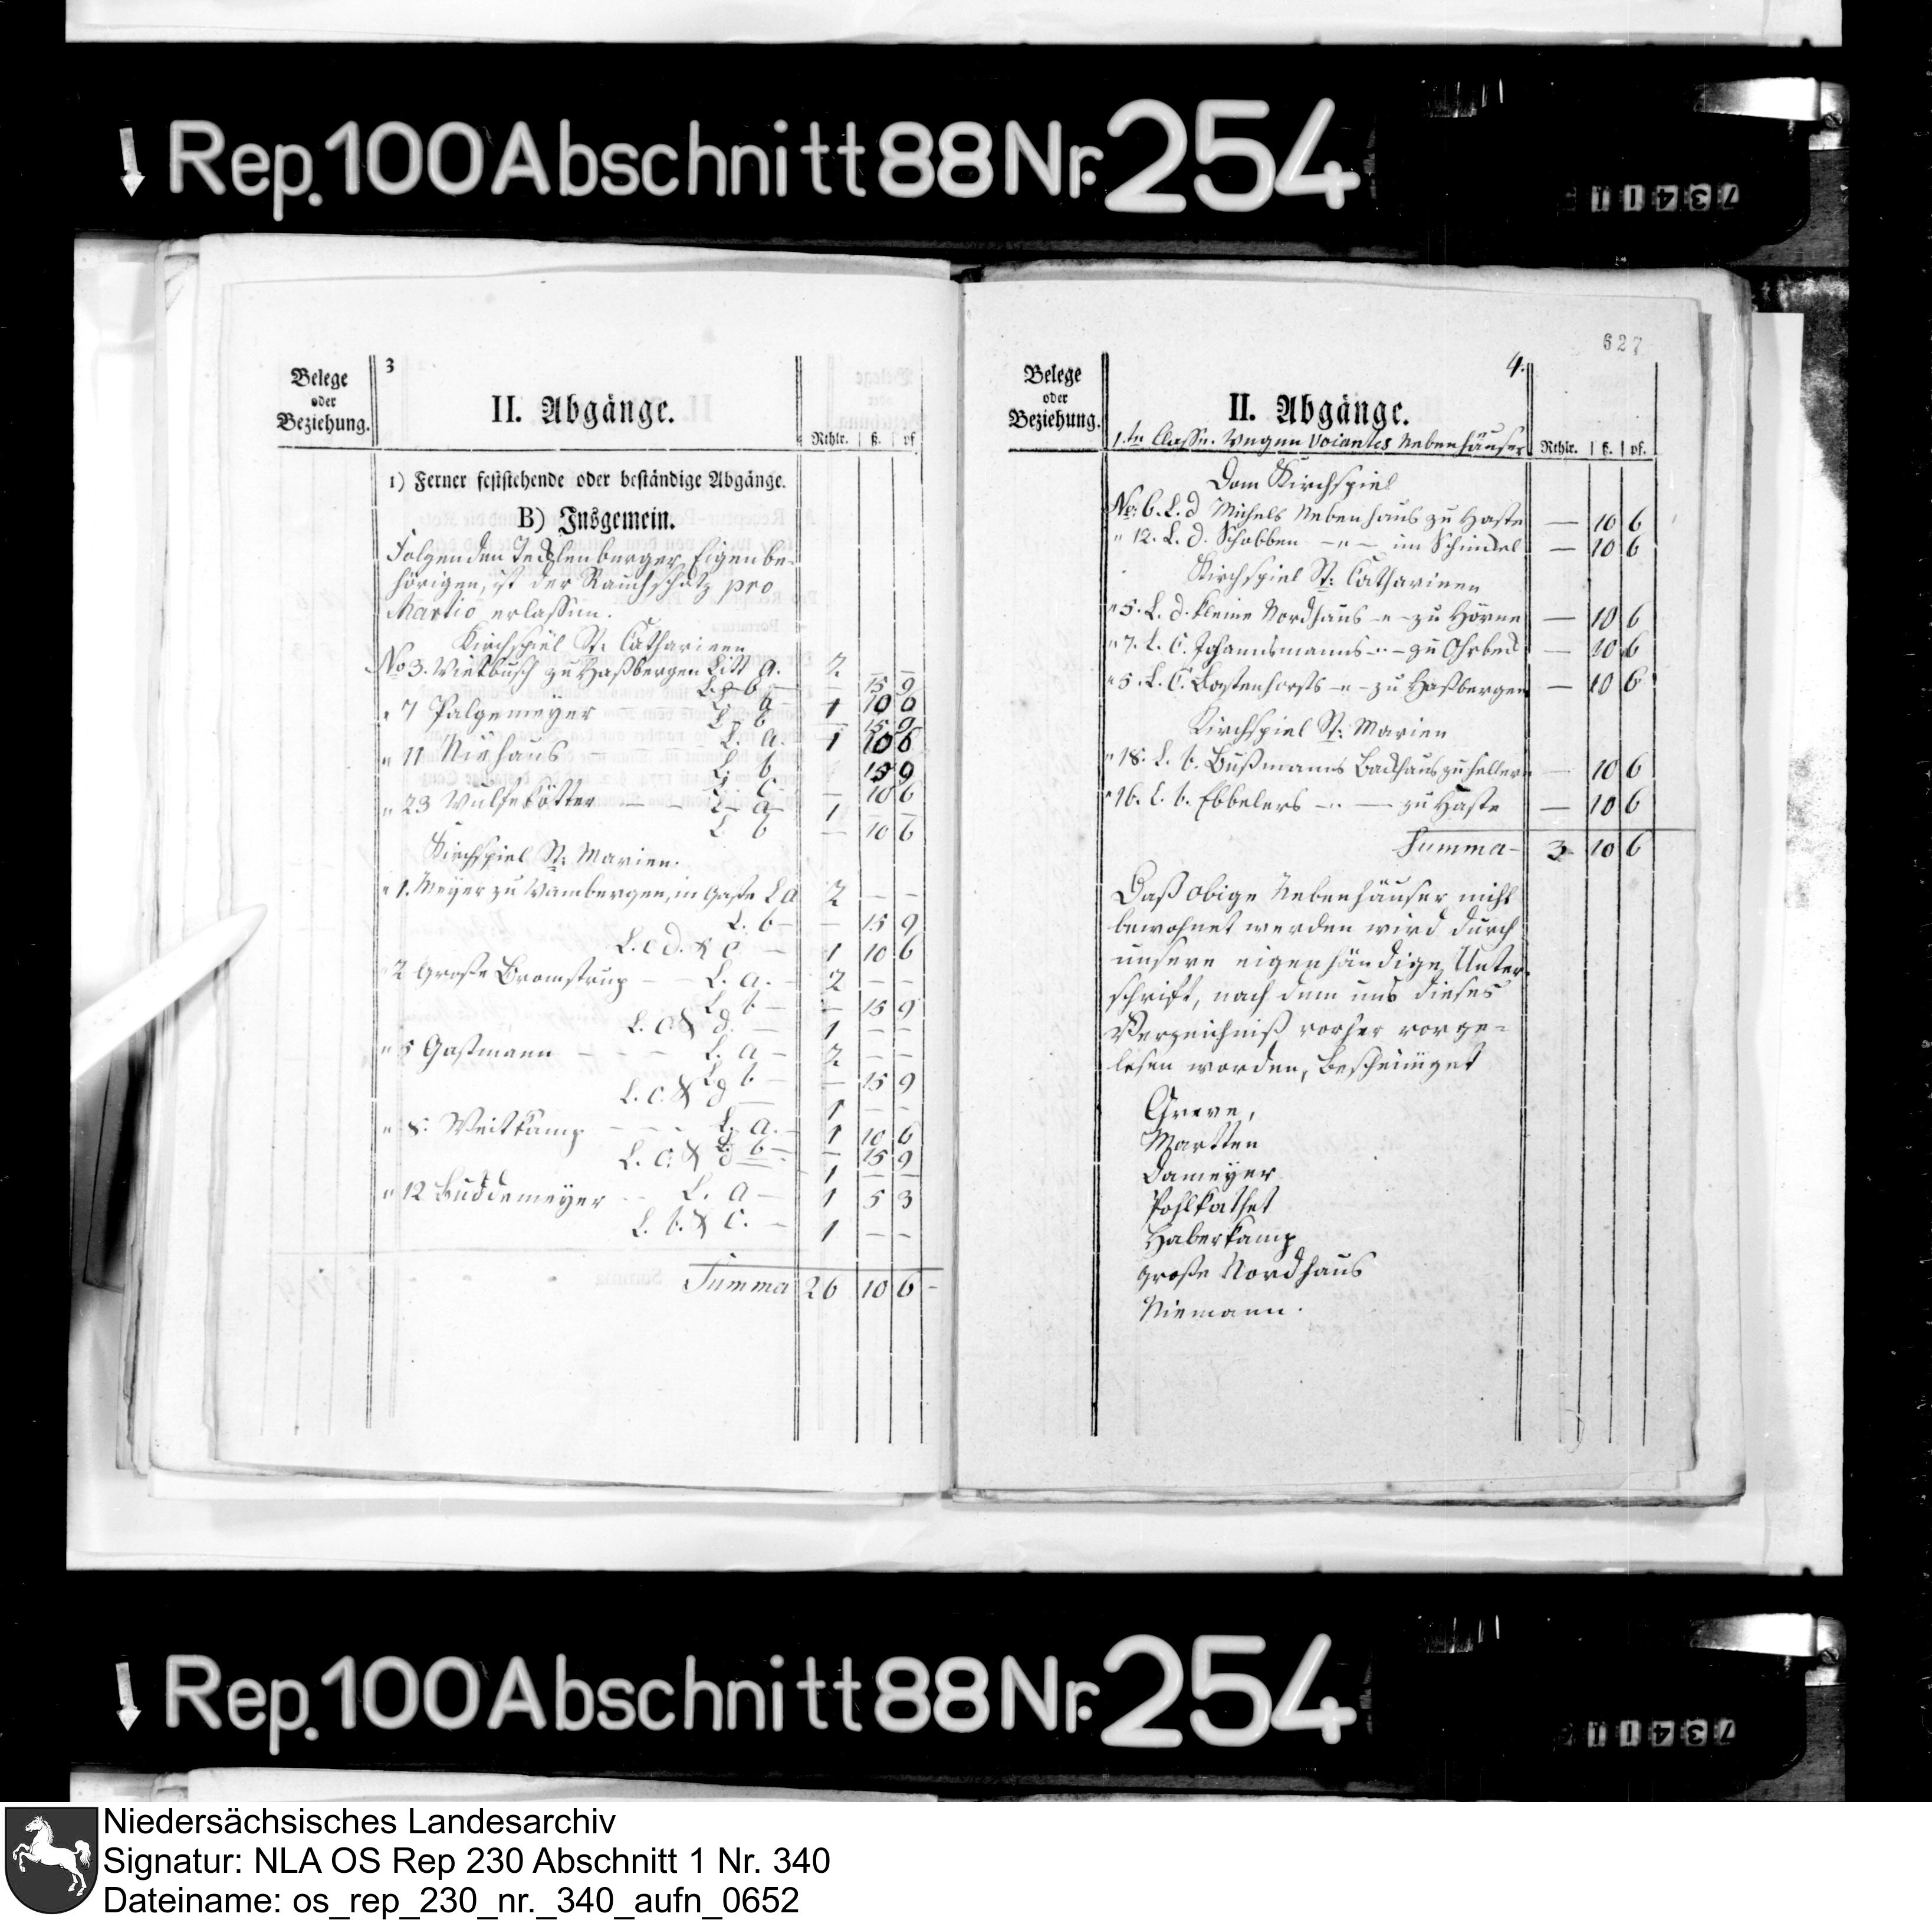 Rep. 100 Abschnitt 88 Nr. 254
73411
Belege
oder
Beziehung.
3
II. Abgänge.
Rthlr. ß. pf.
1) Ferner feststehende oder beständige Abgänge.
B) Insgemein.
Folgenden Tecklenburger Eigenbe-
hörigen, ist der Rauchschatz pro
Martio erlassen.
Kirchspiel St: Catharinen
No 3. Wietbusch zu Haßbergen Litt a. 2 – –
L. b – – 15 9
" 7 Palgemeyer – – – L. a – 1 10 6
L. b – 15 9
" 11 Niehaus L. a. 1 10 6
L. b 15 9
L. c. – 10 6
" 23 Wulfekötter – – L. a – 1 – –
L. b – 10 6
Kirchspiel St: Marien.
" 1. Meyer zu Wambergen, in Gaste L a 2 – –
L. b – – 15 9
L. c d. & e – 1 10 6
" 2 Große Bromstrup – – L. a. – 2 – –
L. b – – 15 9
L. c & d. – 1 – –
" 5 Gastmann – – – L. a – 2 – –
L. b – – 15 9
L. c. & d – 1 – –
" 8. Weitkamp – – – L. a. – 1 10 6
L. b – – 15 9
L. c. & d – 1 – –
" 12 Buddemeyer – – L. a – 1 5 3
L. b. & c. – 1 – –
Summa 26 10 6 –
627
Belege
oder
Beziehung.
4.
II. Abgänge.
1.te Classe. Wegen Voiantes Nebenhäuser Rthlr. ß. pf.
Dom Kirchspiel
No: 6. L. d Michels Nebenhaus zu Haste – 10 6
" 12. L. d. Schobben – " – im Schinkel – 10 6
Kirchspiel St: Catharinen
" 5. L. d. kleine Nordhaus – " – zu Hörne – 10 6
" 7. L. C. Johannsmanns – " – zu Ohrbeck – 10 6
" 5. L. C. Kostenhorsts – " – zu Haßbergen – 10 6
Kirchspiel St: Marien
" 18. L. b. Bußmanns Backhaus zu Hellern – 10 6
" 16. L. b. Ebbelers – " – zu Haste – 10 6
Summa – 3 10 6
Daß obige Nebenhäuser nicht
bewohnet werden wird durch
unsere eigenhändige Unter-
schrift, nach dem uns dieses
Verzeichniß vorher vorge-
lesen worden, bescheiniget
Greve,
Martten
Dameyer
Pohlkathet
Haberkamp
große Nordhaus
Niemann.
Rep. 100 Abschnitt 88 Nr. 254
73411
Niedersächsisches Landesarchiv
Signatur: NLA OS Rep 230 Abschnitt 1 Nr. 340
Dateiname: os_rep_230_nr._340_aufn_0652